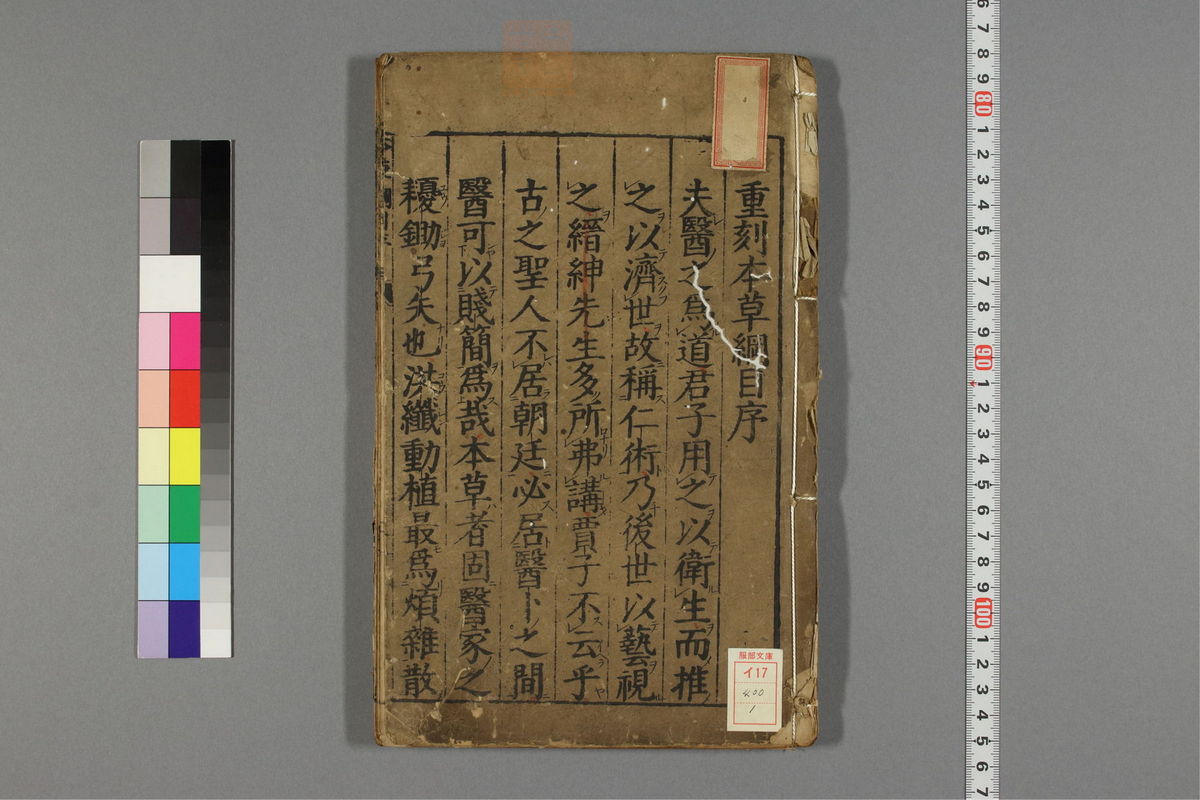 重刻本草綱目序
夫醫之爲道君子用之以衛生而推
之以濟世故稱仁術乃後世以藝視
之縉紳先生多所弗講賈子不云乎
古之聖人不居朝廷必居醫卜之間
醫可以賤簡爲哉本草者固醫家之
耰鋤弓矢也洪纖動植最爲煩雜散
服部文庫
イ17
400
1
6 7 8 9 80 1 2 3 4 5 6 7 8 9 90 1 2 3 4 5 6 7 8 9 100 1 2 3 4 5 6 7